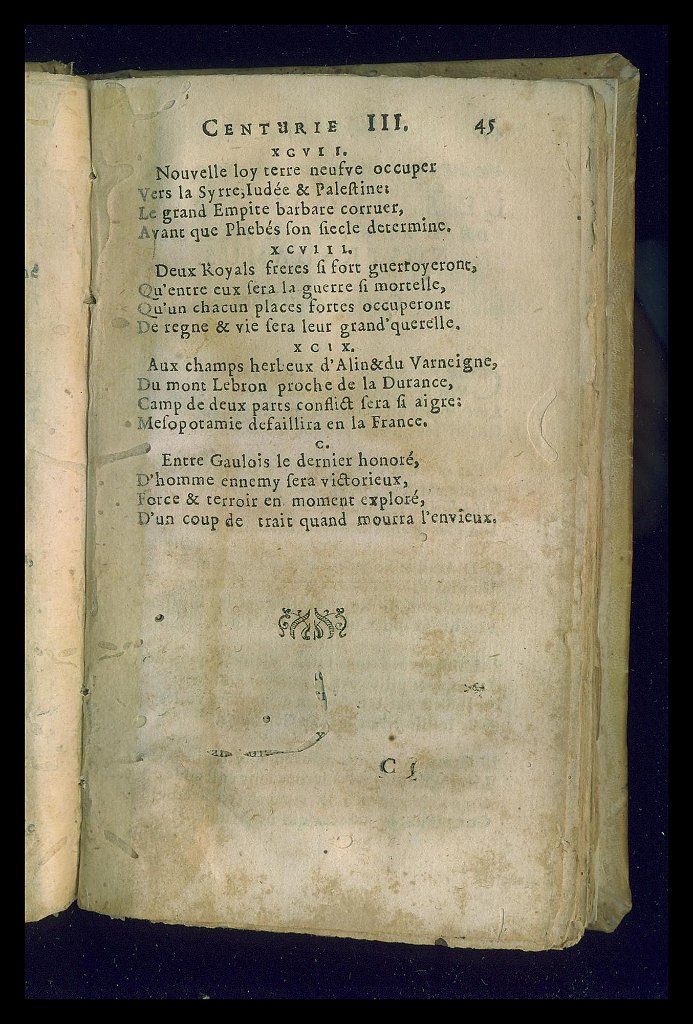 CENTURIE III. 45
XCVII.
Nouvelle loy terre neufve occuper
Vers la Syrre, Iudée & Palestine:
Le grand Empire barbare corruer,
Avant que Phebés son siecle determine.
XCVIII.
Deux Royals freres si fort guerroyeront,
Qu'entre eux sera la guerre si mortelle,
Qu'un chacun places fortes occuperont
De regne & vie sera leur grand'querelle.
XCIX.
Aux champs herbeux d'Alin&du Varneigne,
Du mont Lebron proche de la Durance,
Camp de deux parts conflict sera si aigre:
Mesopotamie defaillira en la France.
C.
Entre Gaulois le dernier honoré,
D'homme ennemy sera victorieux,
Force & terroir en moment exploré,
D'un coup de trait quand mourra l'envieux.